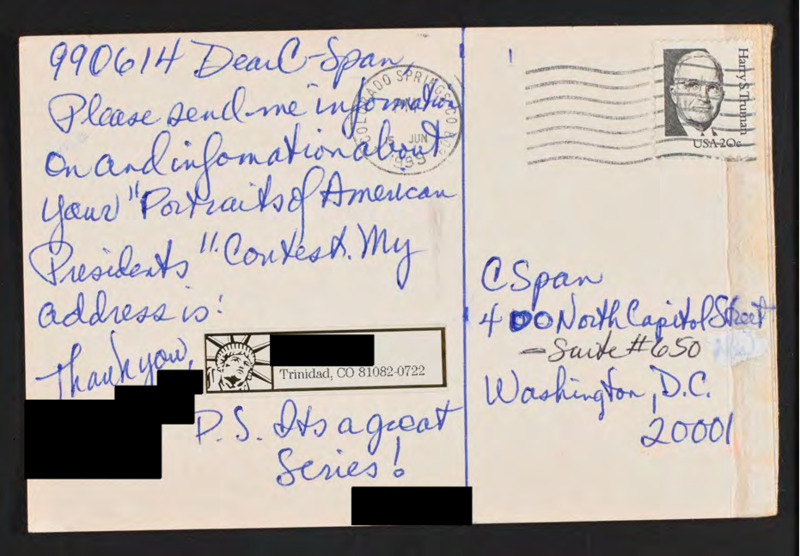 990614 Dear C-Span,
Please send me information
on and infomation about
your "Portraits of American
Presidents" Contest. My
address is:
Thank you,
Trinidad, CO 81082-0722
P.S. Its a great
Series!
COLORADO SPRINGS CO
15 JUN
1999
Harry S. Truman
USA 20c
C Span
400 North Capitol Street
- Suite #650
Washington, D.C.
20001